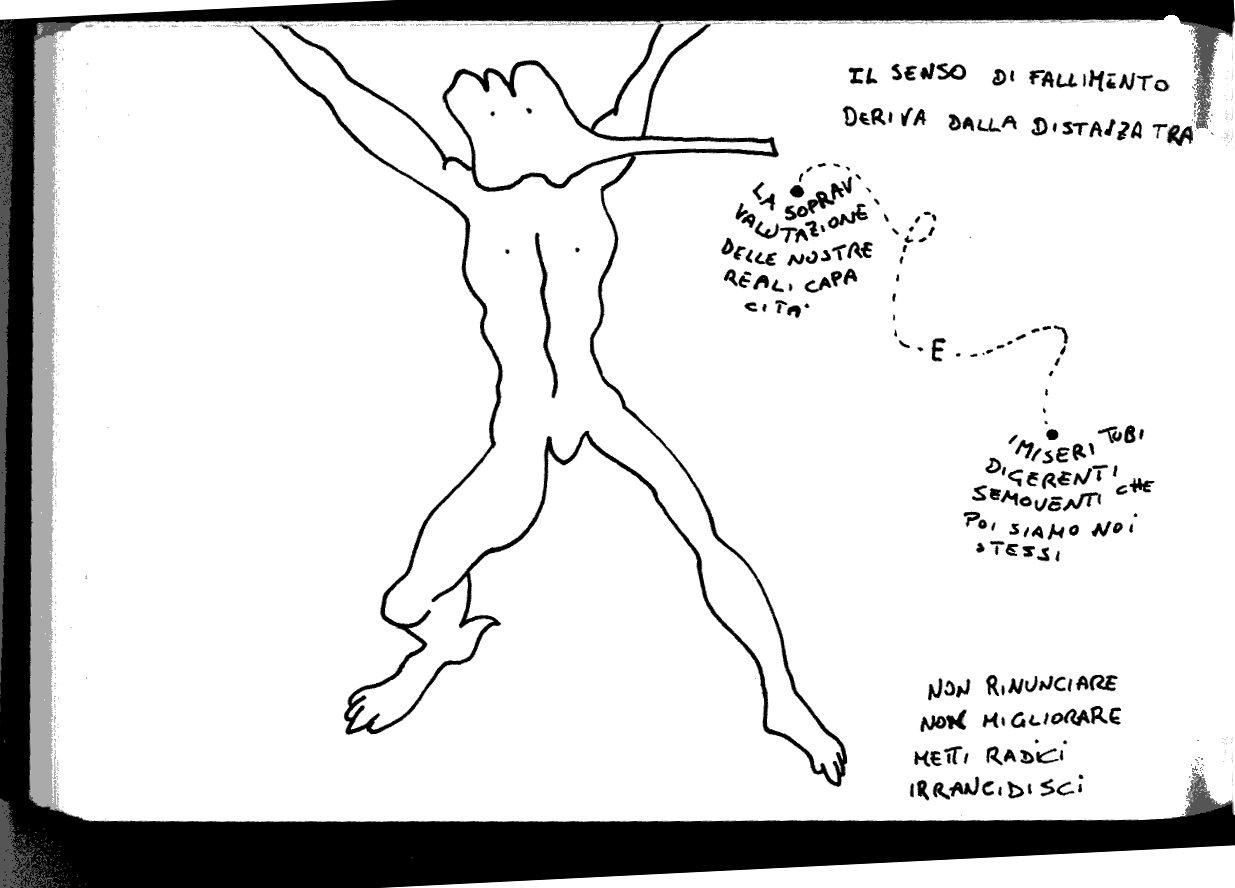 IL SENSO DI FALLIMENTO
DERIVA DALLA DISTANZA TRA
LA SOPRAV
VALUTAZIONE
DELLE NOSTRE
REALI CAPA
CITA'
E
I MISERI TUBI
DIGERENTI
SEMOVENTI CHE
POI SIAMO NOI
STESSI
NON RINUNCIARE
NON MIGLIORARE
METTI RADICI
IRRANCIDISCI